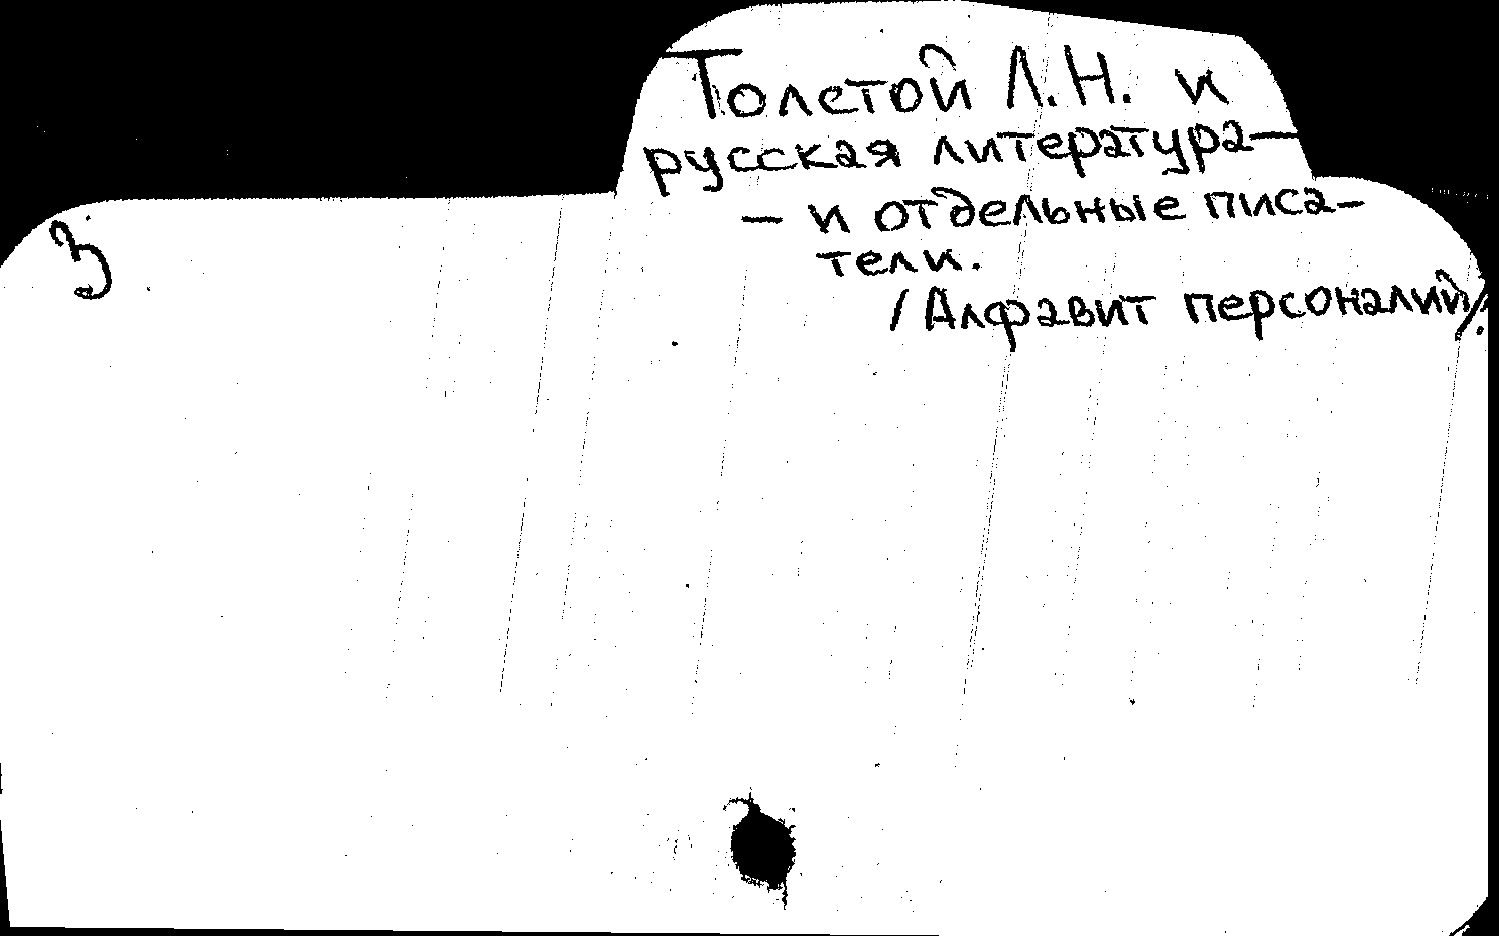 Толстой Л.Н. и
русская литература —
— и отдельные писа-
тели.
/Алфавит персоналий/.
3